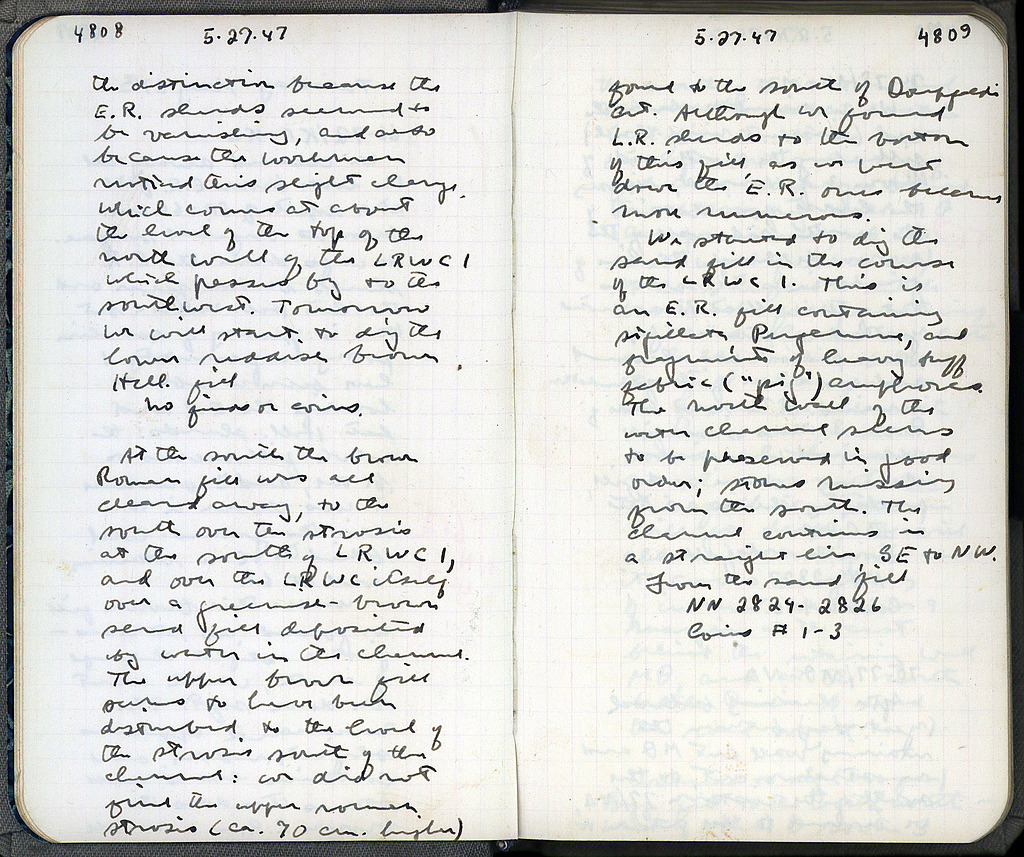 4808 5.27.47
the distinction because the
E.R. sherds seemed to
be vanishing, and also
because the workmen
noticed this slight change,
which comes at about
the level of the top of the
north wall of the LRWC 1
which passes by to the
southwest. Tomorrow
we will start to dig the
lower reddish brown
Hell. fill
No finds or coins.
At the south the brown
Roman fill was all
cleared away, to the
south over the strosis
at the south of LRWC 1,
and over the LRWC itself
over a greenish-brown
sand fill deposited
by water in the channel.
The upper brown fill
seems to have been
disturbed to the level of
the strosis south of the
channel: we did not
find the upper roman
strosis (ca. 70 cm. higher)
5.27.47 4809
found to the south of
cut. Although we found
L.R. sherds to the bottom
of this fill, as we went
down the E.R. ones became
more numerous.
We started to dig the
sand fill in the course
of the LRWC 1. This is
an E.R. fill containing
sigillata Pergamene, and
fragments of heavy buff
fabric ("pig") amphoras.
The north wall of the
water channel seems
to be preserved in good
order; stones missing
from the south. The
channel continues in
a straight line, SE to NW.
From the sand fill
NN 2824-2826
Coins # 1-3